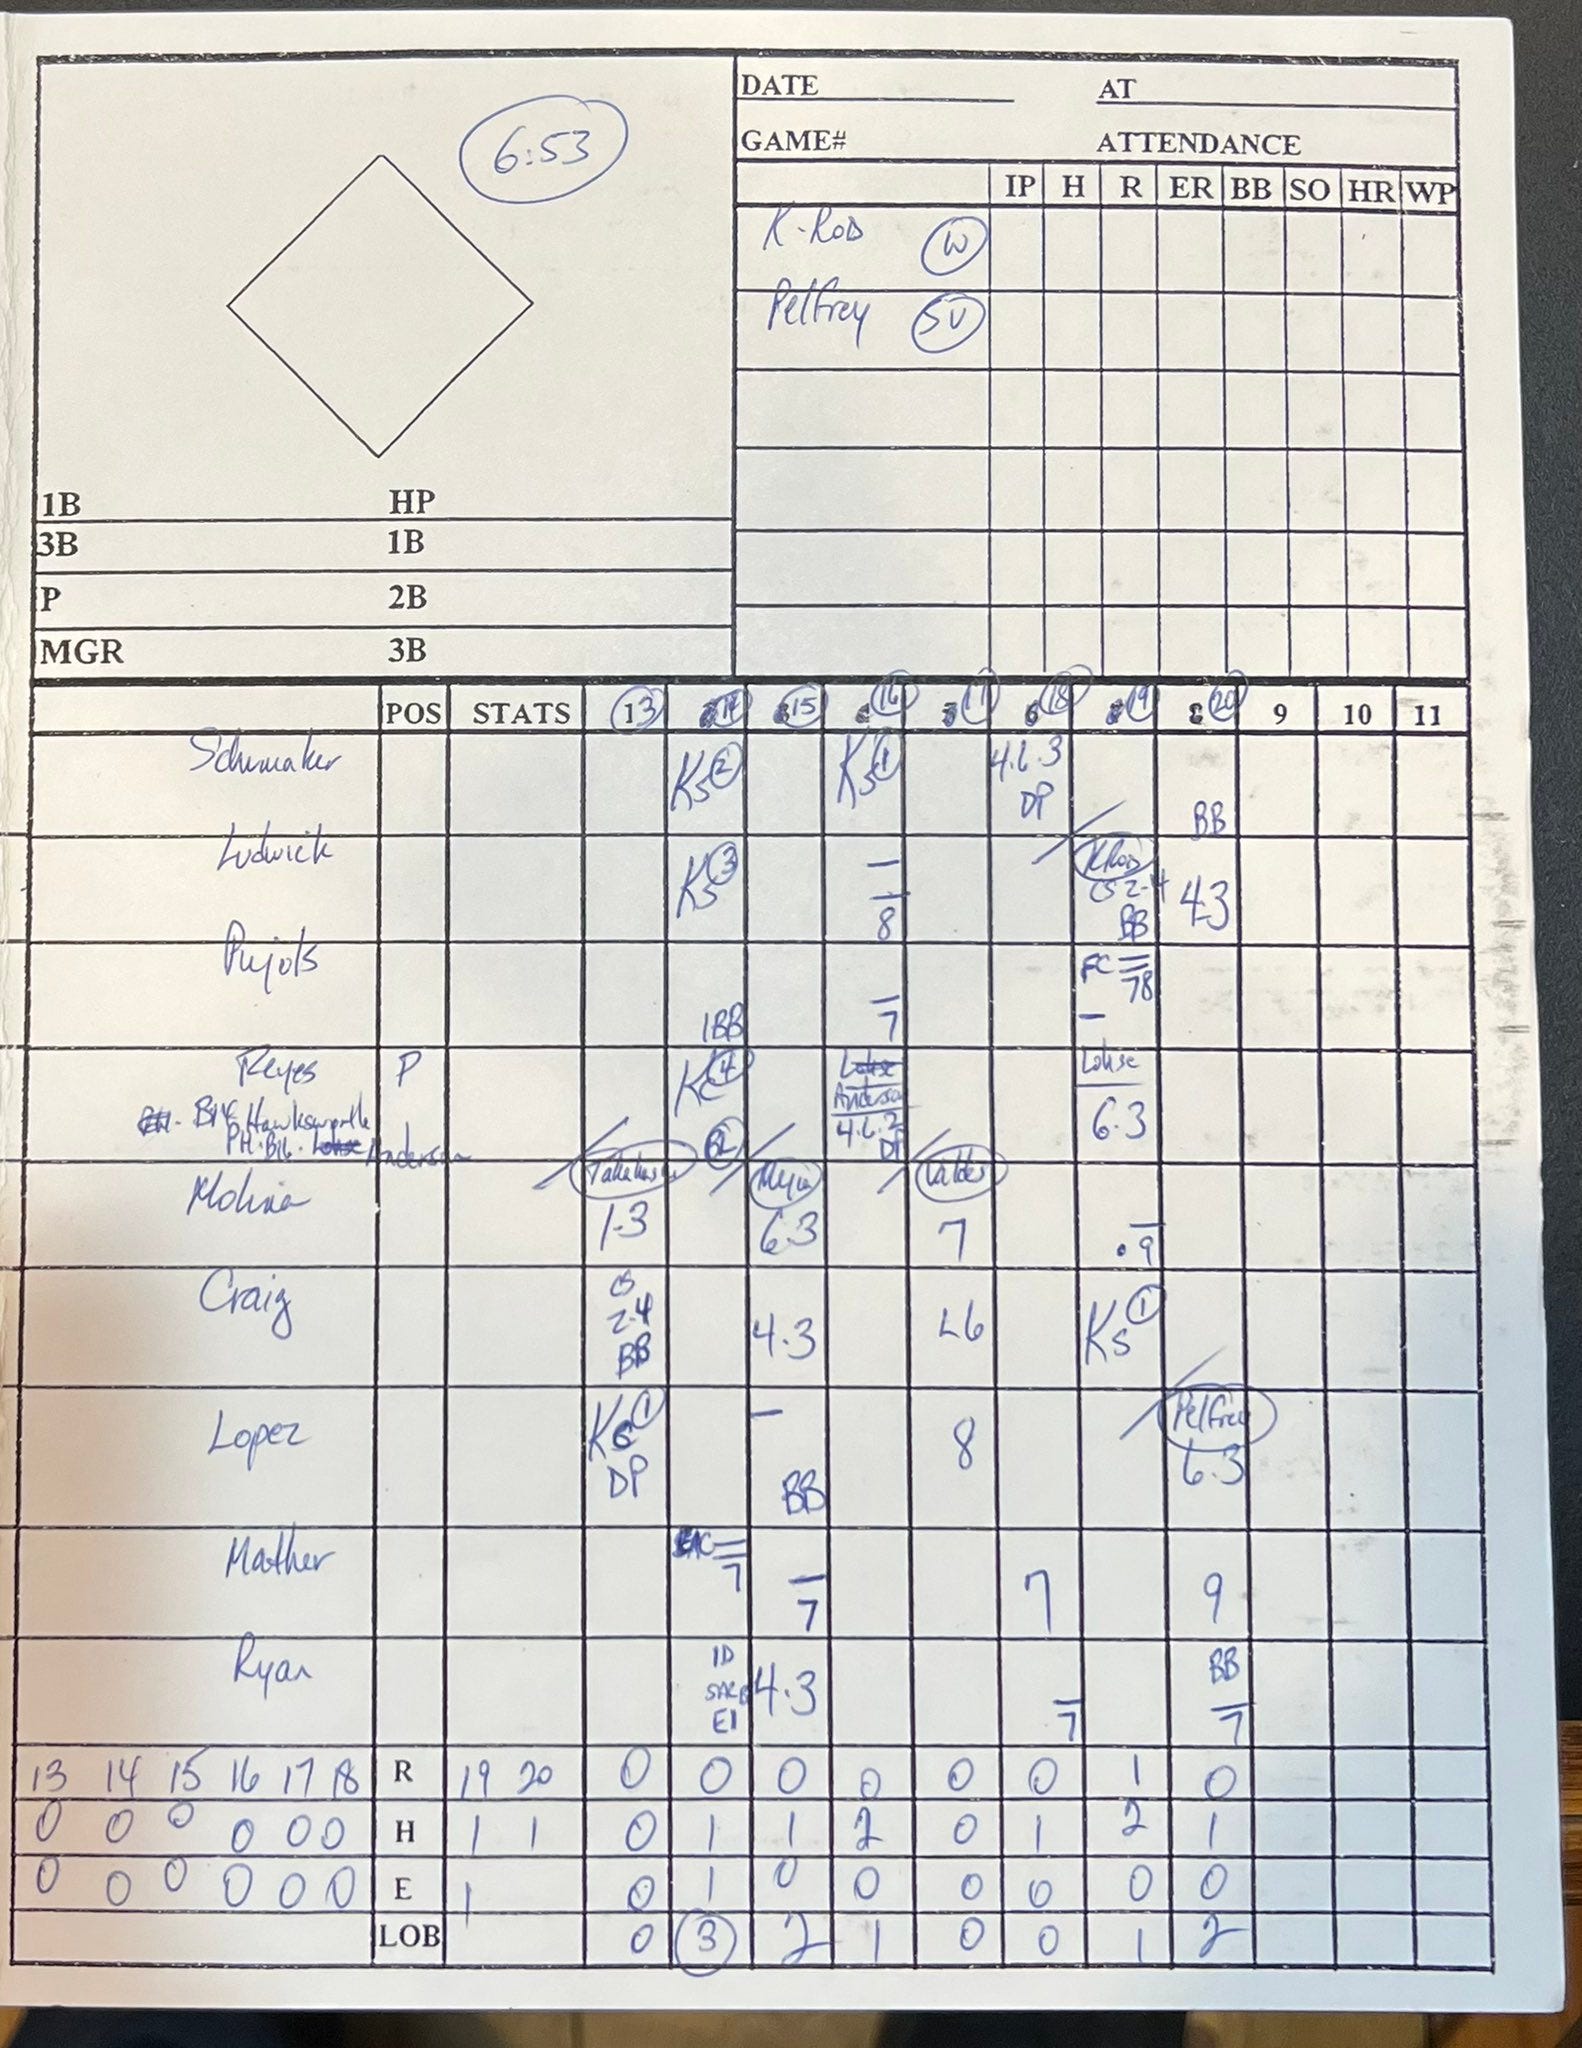 6:53
DATE AT
GAME# ATTENDANCE
IP H R ER BB SO HR WP
K-Rod W
Pelfrey SV
1B HP
3B 1B
P 2B
MGR 3B
POS STATS 13 14 15 16 17 18 19 20 9 10 11
Schumaker Ks 2 Ks 1 4.6.3 DP BB
Ludwick Ks 3 8 K-Rod CS 2-4 BB 4.3
Pujols IBB 7 FC 78
Reyes P Kc 4 Lohse Anderson 4.6.2 DP Lohse 6.3
B14 Hawksworth
PH. B16. Lohse Anderson
Molina Takahashi 1-3 Mejia 6.3 Valdes 7 9
Craig CS 2-4 BB 4.3 L6 Ks 1
Lopez Kc 1 DP BB 8 Pelfrey 6.3
Mather 7 7 7 9
Ryan SACB E1 4.3 7 BB 7
13 14 15 16 17 18 R 19 20 0 0 0 0 0 0 1 0
0 0 0 0 0 0 H 1 1 0 1 1 2 0 1 2 1
0 0 0 0 0 0 E 1 0 1 0 0 0 0 0 0
LOB 0 3 2 1 0 0 1 2